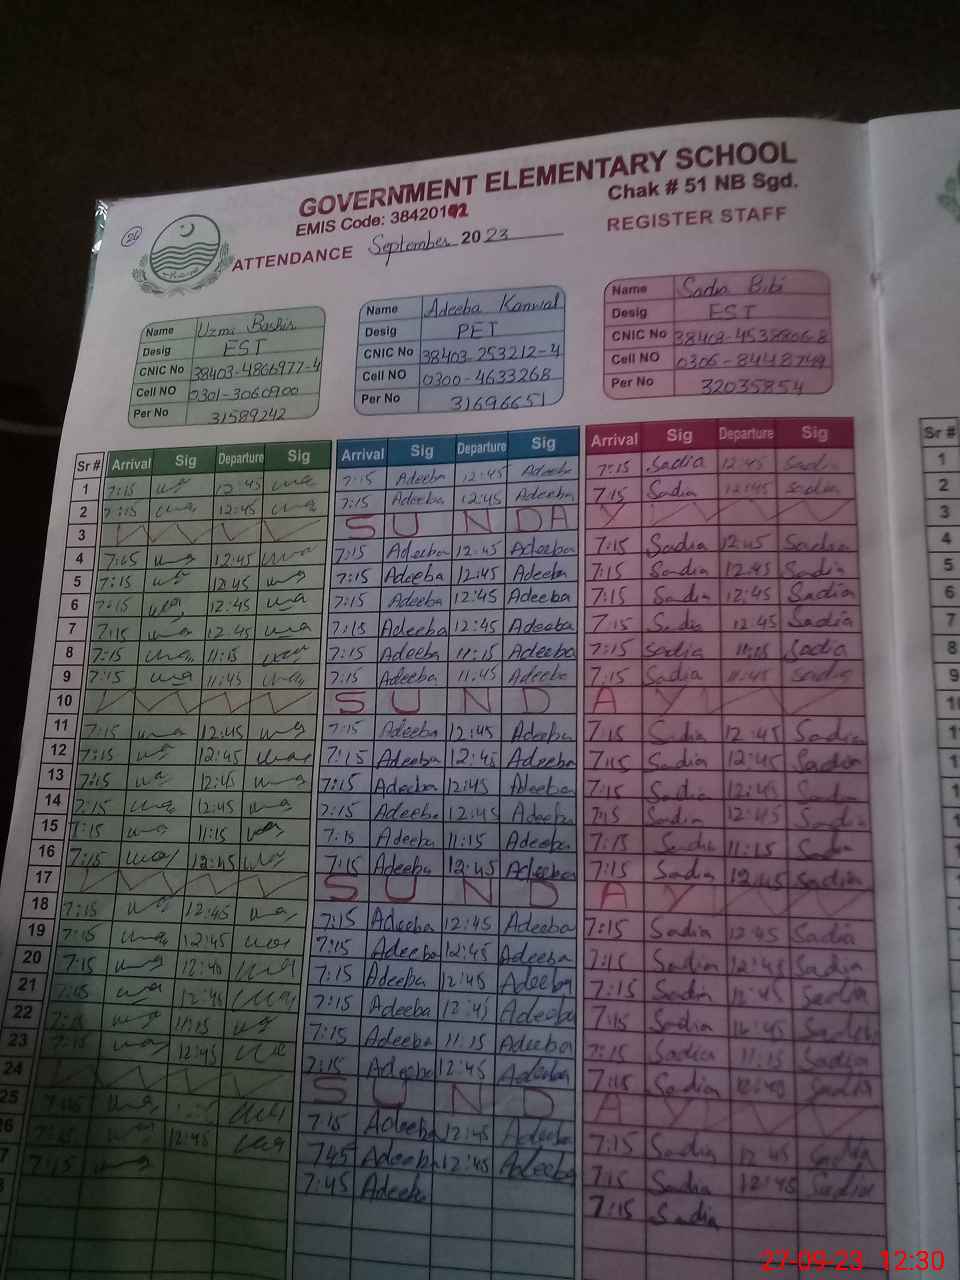 GOVERNMENT ELEMENTARY SCHOOL
EMIS Code: 38420192 Chak # 51 NB Sgd.
26 ATTENDANCE September 2023 REGISTER STAFF
Name Uzma Bashir Name Adeeba Kanwal Name Sadia Bibi
Desig EST Desig PET Desig EST
CNIC No 38403-4866977-4 CNIC No 38403-253212-4 CNIC No 38403-4538806-8
Cell NO 0301-3060900 Cell NO 0300-4633268 Cell NO 0306-8448749
Per No 31589242 Per No 31696651 Per No 32035854
Sr # Arrival Sig Departure Sig Arrival Sig Departure Sig Arrival Sig Departure Sig Sr #
1 7:15 12:45 7:15 Adeeba 12:45 Adeeba 7:15 Sadia 12:45 Sadia 1
2 7:15 12:45 7:15 Adeeba 12:45 Adeeba 7:15 Sadia 12:45 Sadia 2
3 S U N D A Y 3
4 7:15 12:45 7:15 Adeeba 12:45 Adeeba 7:15 Sadia 12:45 Sadia 4
5 7:15 12:45 7:15 Adeeba 12:45 Adeeba 7:15 Sadia 12:45 Sadia 5
6 7:15 12:45 7:15 Adeeba 12:45 Adeeba 7:15 Sadia 12:45 Sadia 6
7 7:15 12:45 7:15 Adeeba 12:45 Adeeba 7:15 Sadia 12:45 Sadia 7
8 7:15 11:15 7:15 Adeeba 11:15 Adeeba 7:15 Sadia 11:15 Sadia 8
9 7:15 11:45 7:15 Adeeba 11:45 Adeeba 7:15 Sadia 11:45 Sadia 9
10 S U N D A Y
11 7:15 12:45 7:15 Adeeba 12:45 Adeeba 7:15 Sadia 12:45 Sadia
12 7:15 12:45 7:15 Adeeba 12:45 Adeeba 7:15 Sadia 12:45 Sadia
13 7:15 12:45 7:15 Adeeba 12:45 Adeeba 7:15 Sadia 12:45 Sadia
14 7:15 12:45 7:15 Adeeba 12:45 Adeeba 7:15 Sadia 12:45 Sadia
15 7:15 11:15 7:15 Adeeba 11:15 Adeeba 7:15 Sadia 11:15 Sadia
16 7:15 12:45 7:15 Adeeba 12:45 Adeeba 7:15 Sadia 12:45 Sadia
17 S U N D A Y
18 7:15 12:45 7:15 Adeeba 12:45 Adeeba 7:15 Sadia 12:45 Sadia
19 7:15 12:45 7:15 Adeeba 12:45 Adeeba 7:15 Sadia 12:45 Sadia
20 7:15 12:40 7:15 Adeeba 12:45 Adeeba 7:15 Sadia 12:45 Sadia
21 12:45 7:15 Adeeba 12:45 Adeeba 7:15 Sadia 12:45 Sadia
22 7:15 11:15 7:15 Adeeba 11:15 Adeeba 7:15 Sadia 11:15 Sadia
23 7:15 12:45 7:15 Adeeba 12:45 Adeeba 7:15 Sadia Sadia
24 S U N D A Y
25 7:15 Adeeba 12:45 Adeeba 7:15 Sadia 12:45 Sadia
26 12:45 7:45 Adeeba 12:45 Adeeba 7:15 Sadia 12:45 Sadia
7:15 7:45 Adeeba 7:15 Sadia
27-09-23 12:30